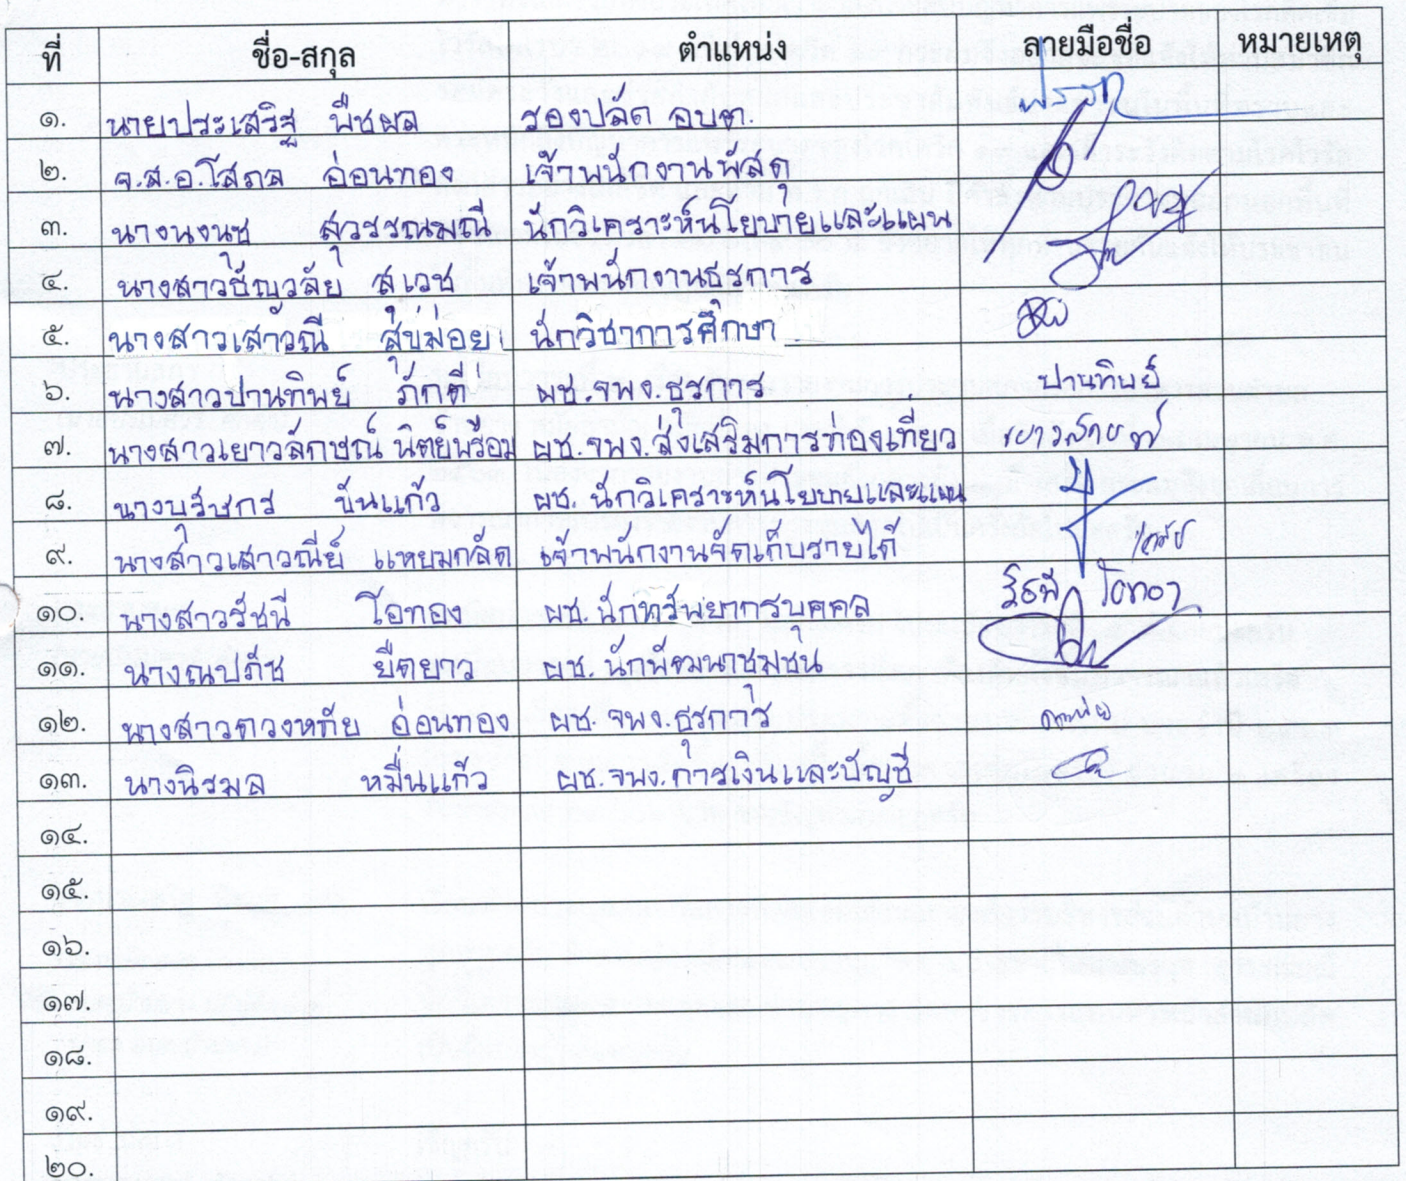 ที่ ชื่อ-สกุล ตำแหน่ง ลายมือชื่อ หมายเหตุ
๑. นายประเสริฐ พืชผล รองปลัด อบต.
๒. จ.ส.อ.โสภล อ่อนทอง เจ้าพนักงานพัสดุ
๓. นางนงนุช สุวรรณมณี นักวิเคราะห์นโยบายและแผน
๔. นางสาวธัญวลัย สุเวช เจ้าพนักงานธุรการ
๕. นางสาวเสาวณี สุขม่อย นักวิชาการศึกษา
๖. นางสาวปานทิพย์ ภักดี ผช.จพง.ธุรการ ปานทิพย์
๗. นางสาวเยาวลักษณ์ นิตย์พร้อม ผช.จพง.ส่งเสริมการท่องเที่ยว เยาวลักษณ์
๘. นางบุริษกร ขันแก้ว ผช.นักวิเคราะห์นโยบายและแผน
๙. นางสาวเสาวณีย์ แหยมกลัด เจ้าพนักงานจัดเก็บรายได้
๑๐. นางสาวรัชนี โอทอง ผช.นักทรัพยากรบุคคล รัชนี โอทอง
๑๑. นางณปภัช ยืดยาว ผช.นักพัฒนาชุมชน
๑๒. นางสาวดวงหทัย อ่อนทอง ผช.จพง.ธุรการ
๑๓. นางนิรมล หมื่นแก้ว ผช.จพง.การเงินและบัญชี
๑๔.
๑๕.
๑๖.
๑๗.
๑๘.
๑๙.
๒๐.